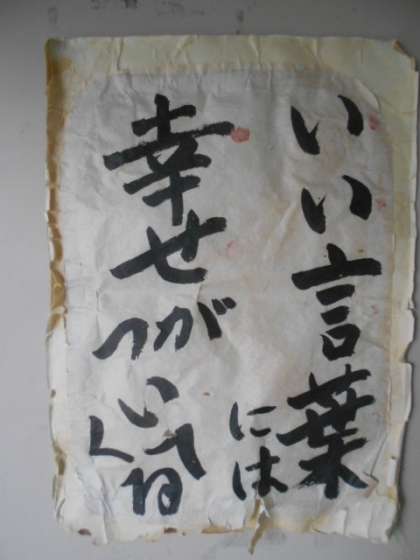 いい言葉
には
幸せが
ついて
くる